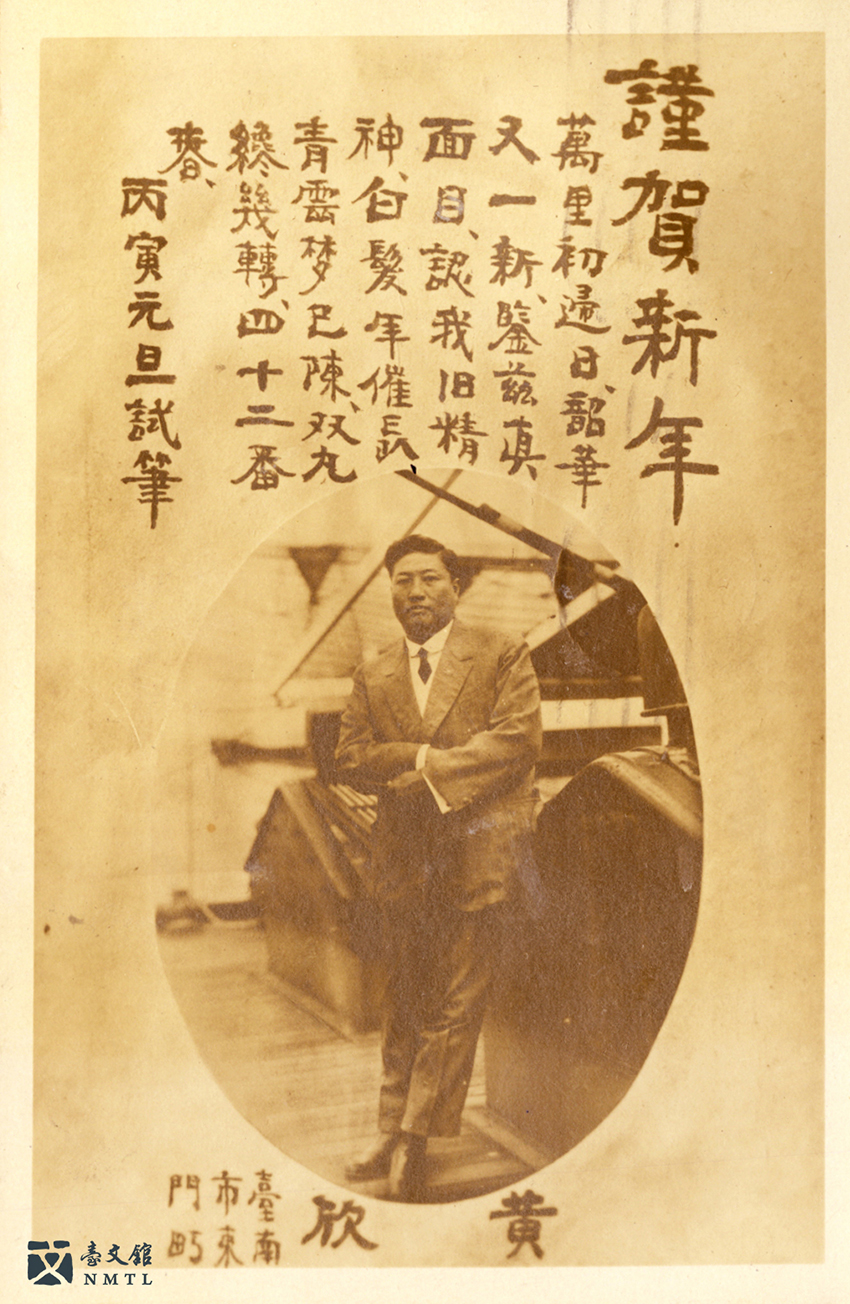 謹賀新年
萬里初歸日、韶華
又一新、鑒茲真
面目、認我旧精
神、白髮年催長
青雲梦已陳、双丸
纔幾轉、四十二番
春、
丙寅元旦試筆
黃欣
臺南
市東
門町
臺文館
NMTL